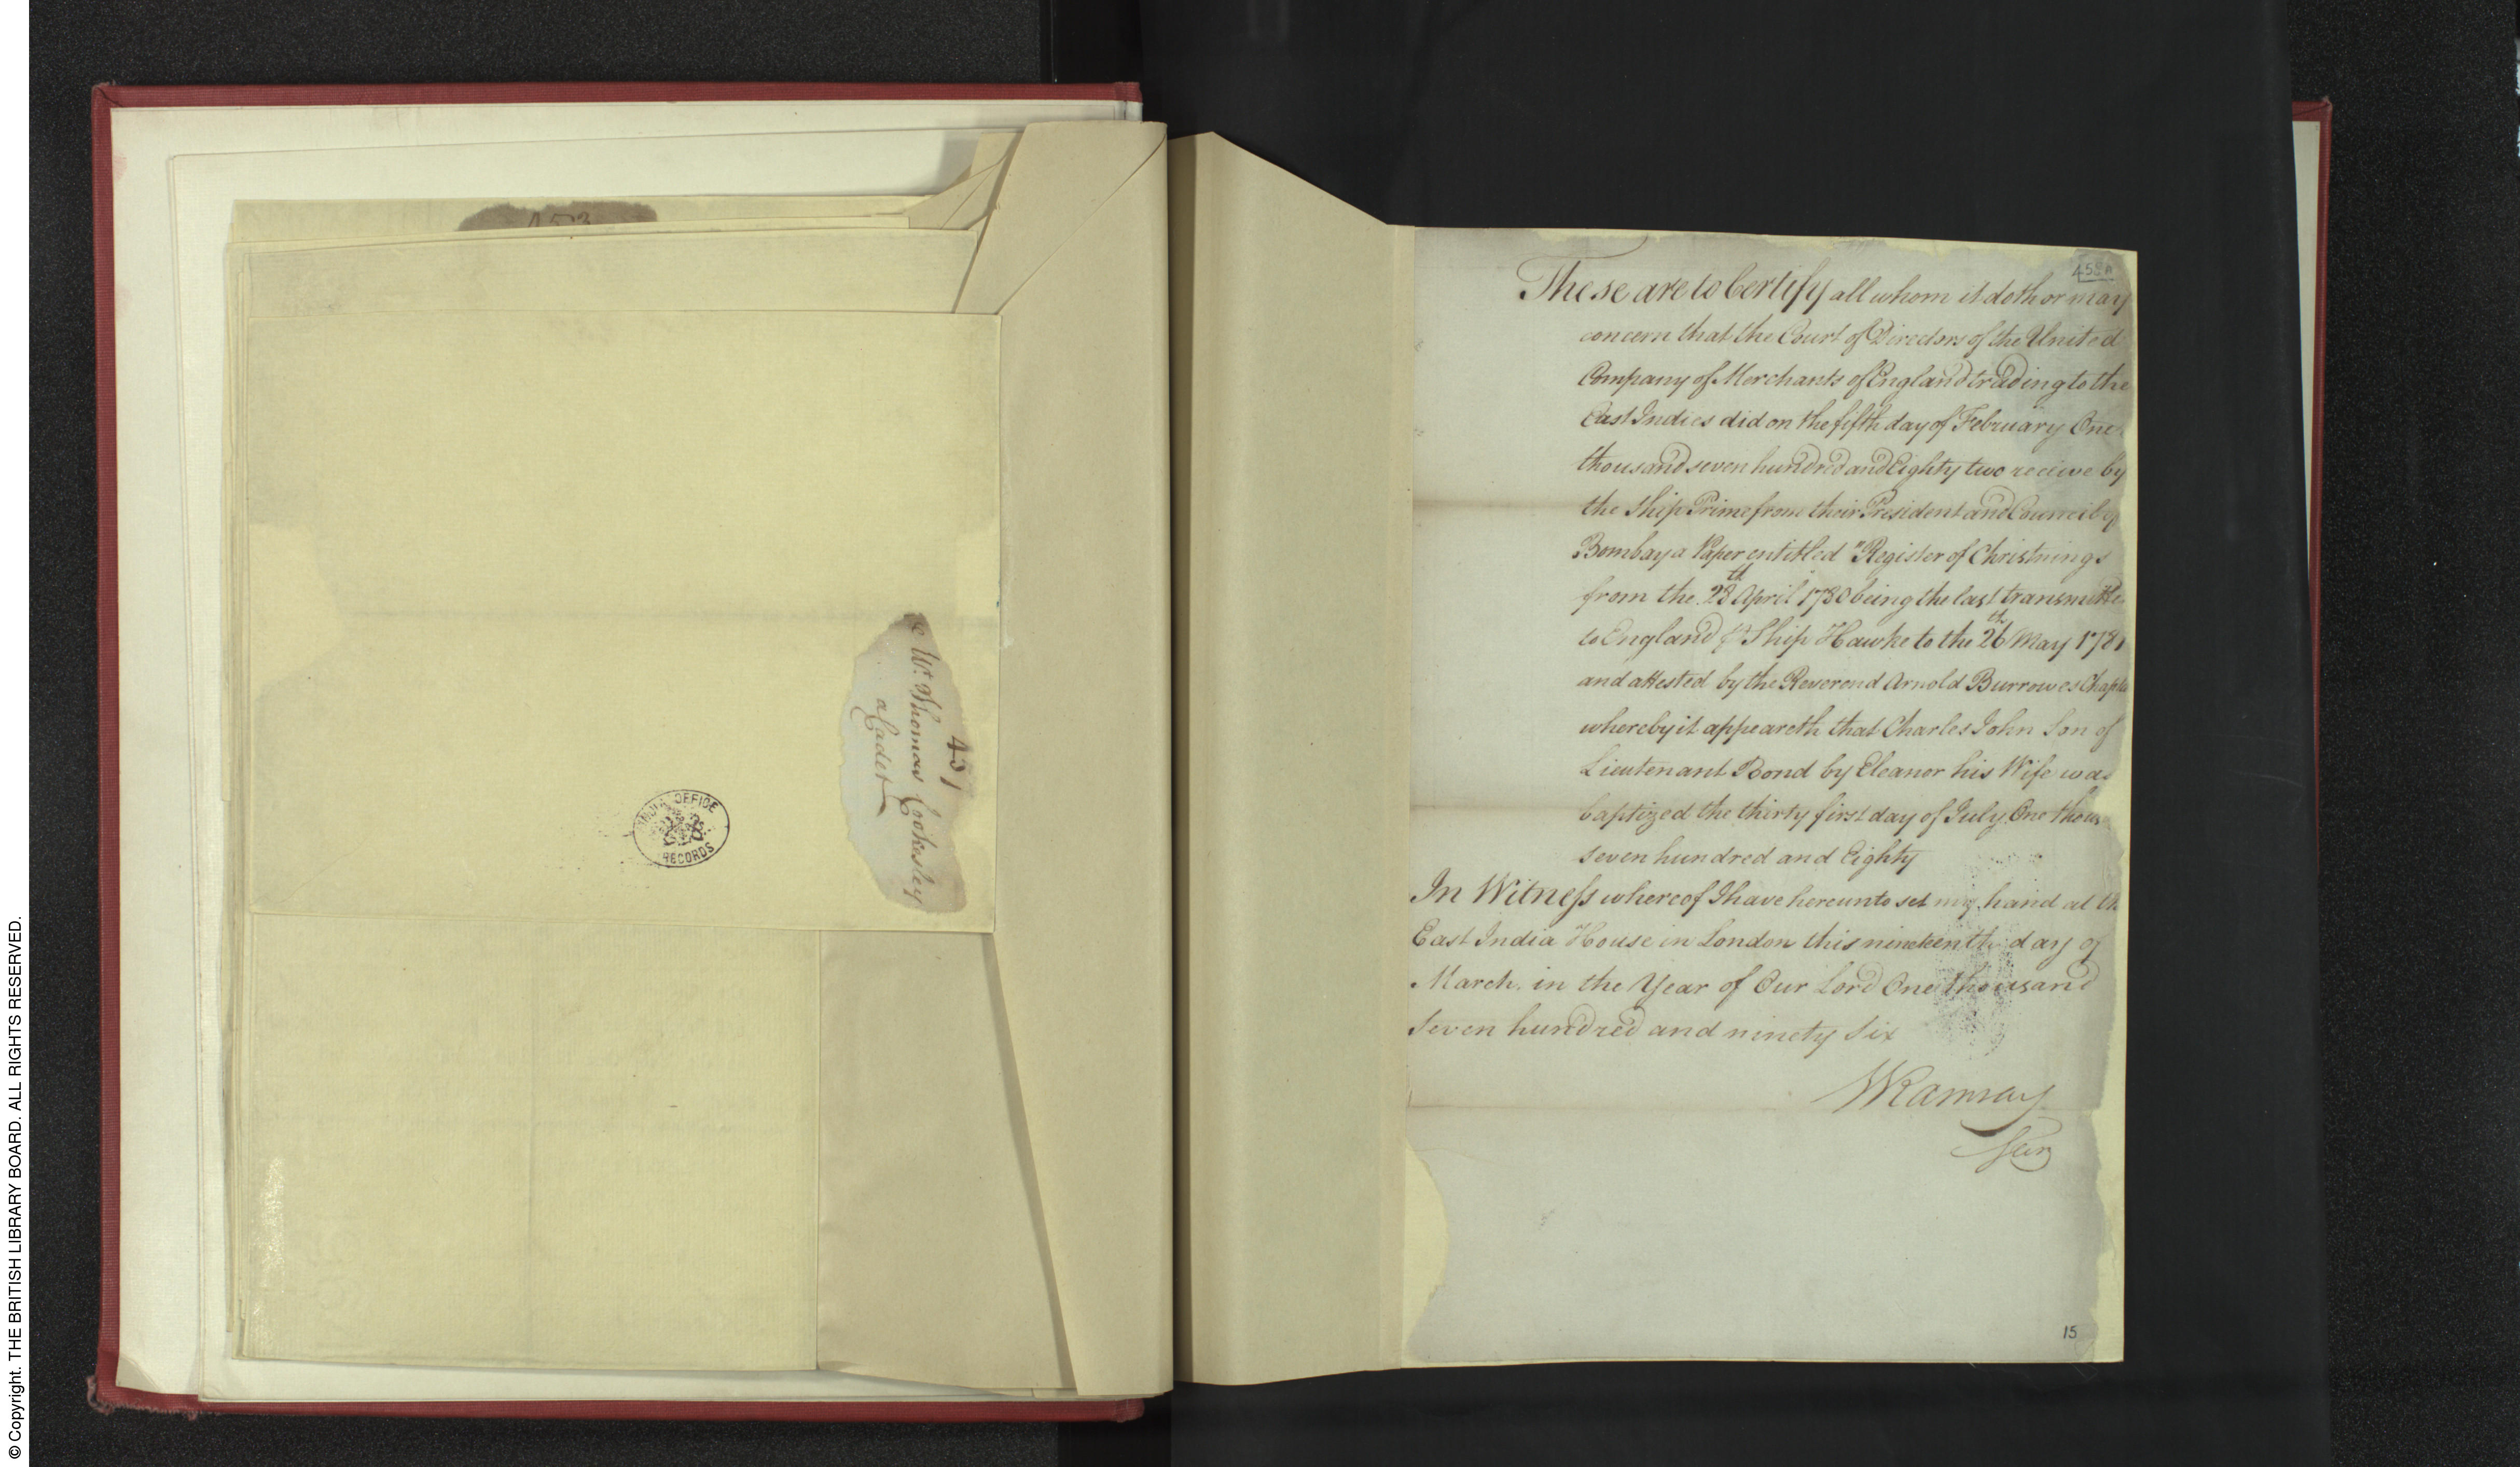 453
451
Mr. Thomas Cookesley
a Cadet
INDIA OFFICE
RECORDS
These are to Certify all whom it doth or may
concern that the Court of Directors of the United
Company of Merchants of England trading to the
East Indies did on the fifth day of February One
thousand seven hundred and Eighty two receive by
the Ship Prime from their President and Council of
Bombay a Paper entitled "Register of Christnings
from the 28th April 1780 being the last transmitte
to England pr Ship Hawke to the 26th May 1781
and attested by the Reverend Arnold Burrowes Chapla
whereby it appeareth that Charles John Son of
Lieutenant Bond by Eleanor his Wife was
baptized the thirty first day of July One thous
seven hundred and Eighty
In Witness whereof I have hereunto set my hand at th
East India House in London this nineteenth day of
March in the Year of Our Lord One thousand
Seven hundred and ninety Six
WRamsay
Secy
15
© Copyright. THE BRITISH LIBRARY BOARD. ALL RIGHTS RESERVED.